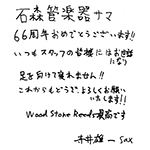 石森管楽器サマ
66周年おめでとうございます!!
いつもスタッフの皆様にはお世話
になり
足を向けて寝れません!!
これからもどうぞよろしくお願い
いたします!!
Wood Stone Reeds最高です
本井雄一 Sax